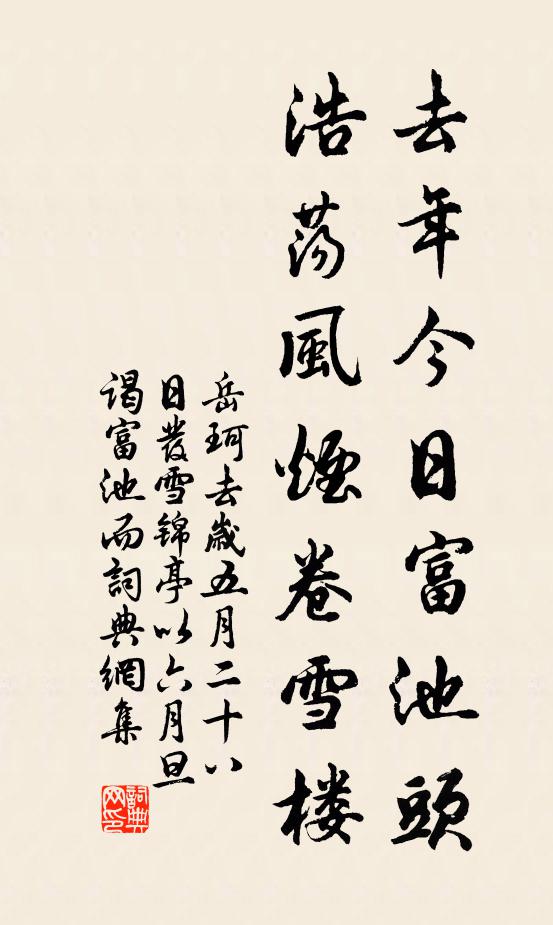 去年今日富池頭
浩荡風煙卷雪楼
岳珂去歲五月二十八
日发雪锦亭以六月旦
谒富池而詞典網集
詞典网印